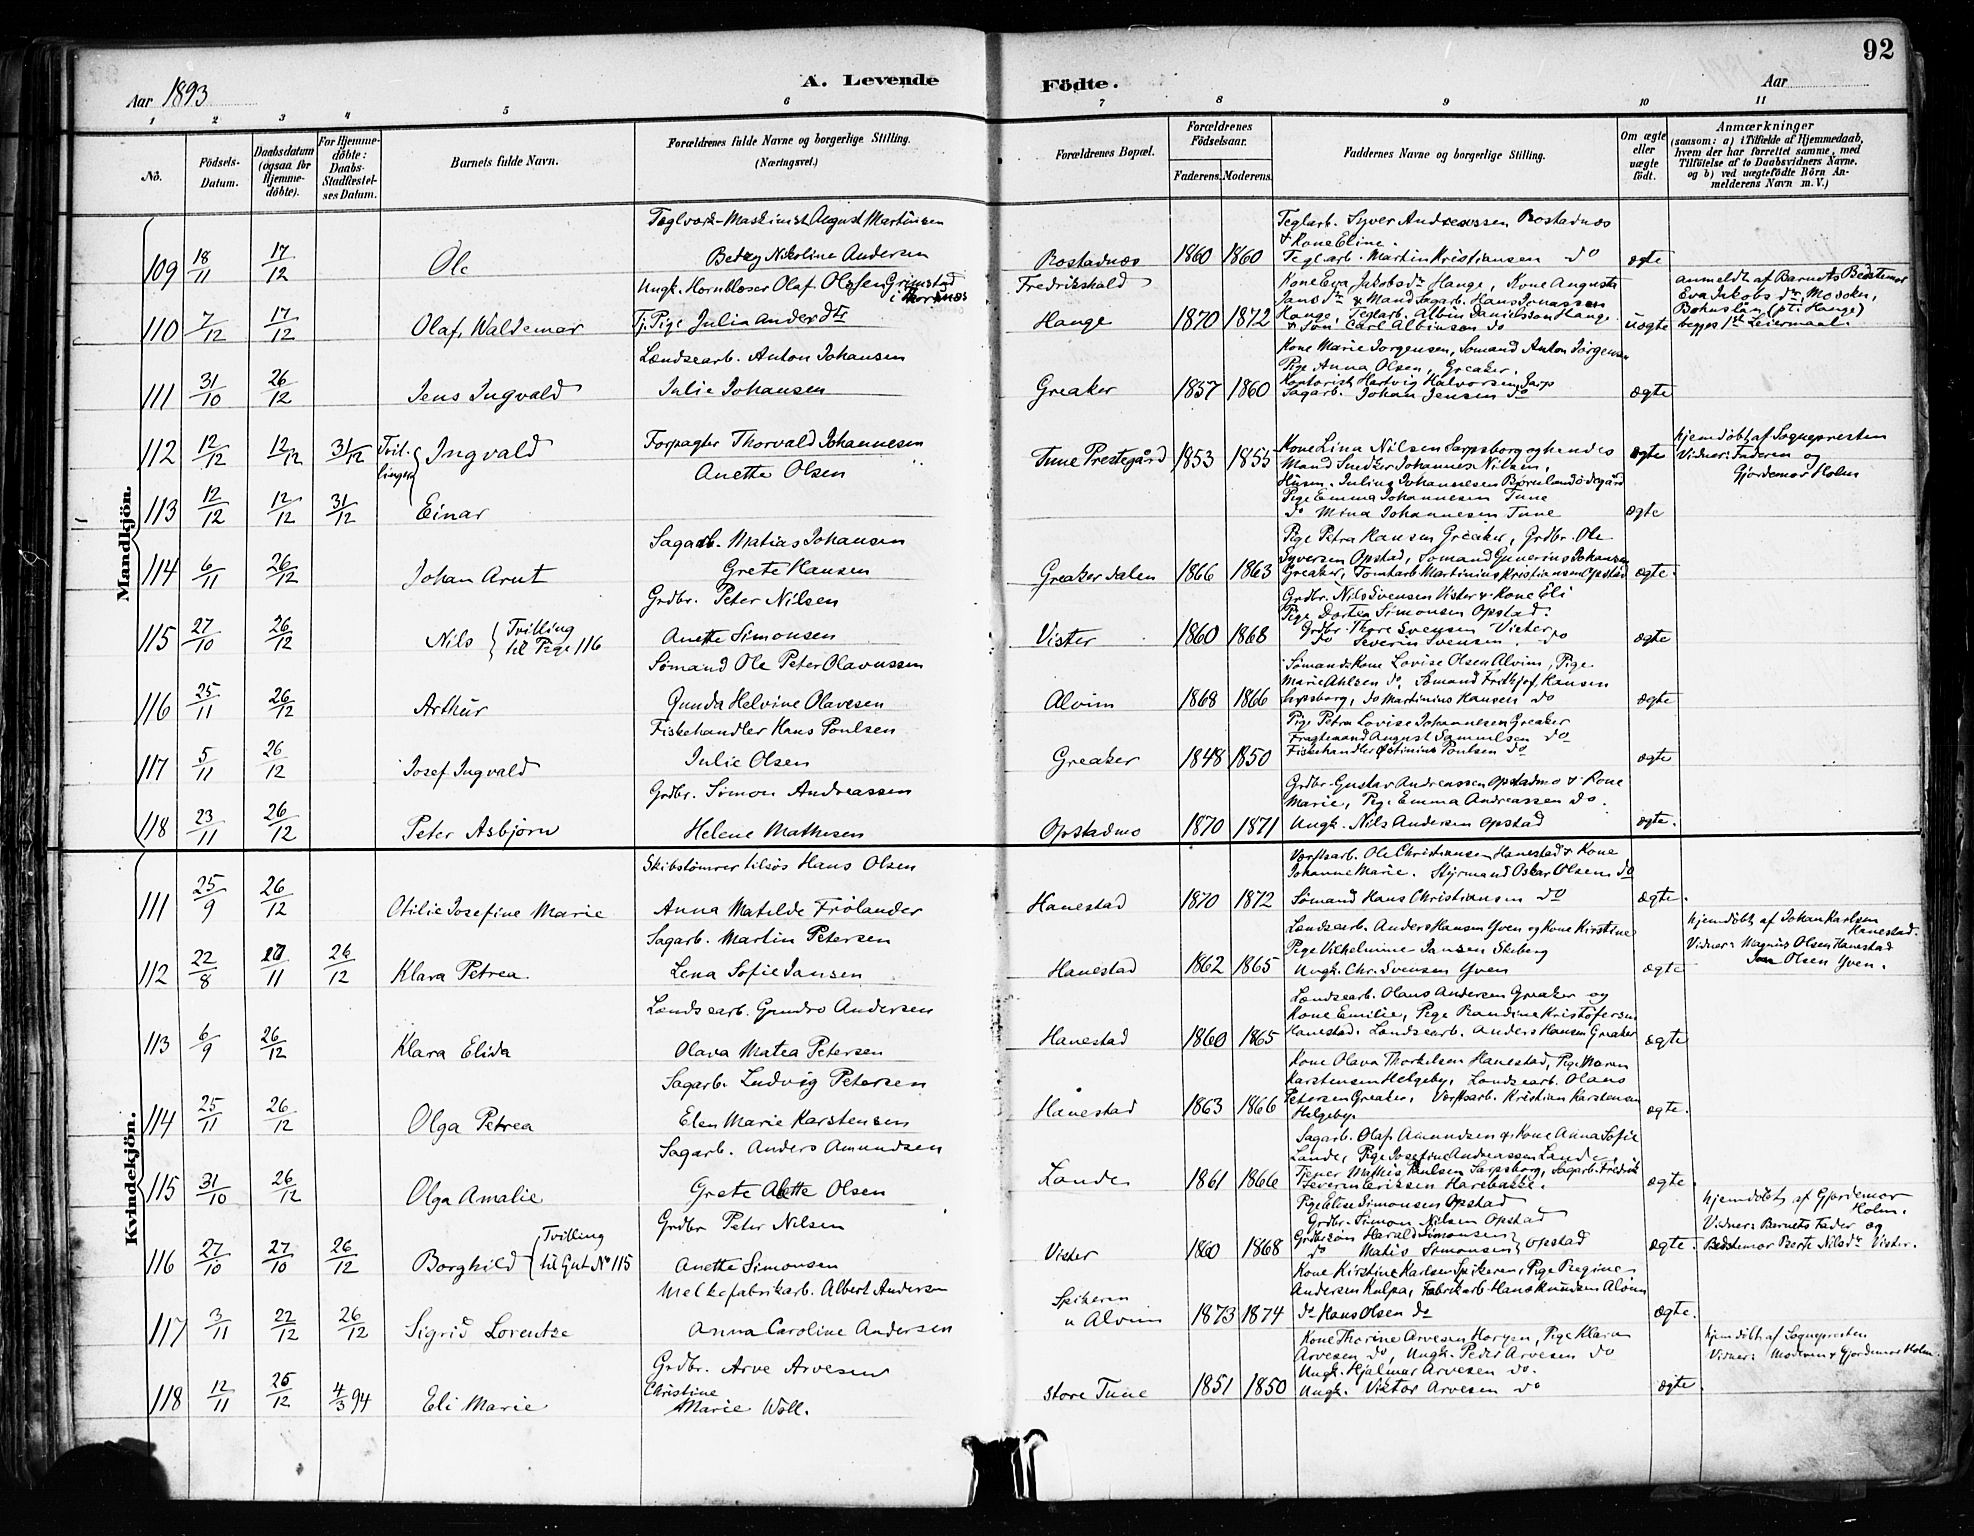 92
Aar 1893
A. Levende
Födte.
Aar
1 2 3 4 5 6 7 8 9 10 11
No.
Födsels-Datum.
Daabsdatum (ogsaa for Hjemme-döbte).
For Hjemme-döbte: Daabs-Stadfæstel-ses Datum.
Barnets fulde Navn.
Forældrenes fulde Navne og borgerlige Stilling. (Næringsvei.)
Forældrenes Bopæl.
Forældrenes Födselsaar.
Faderens. Moderens.
Faddernes Navne og borgerlige Stilling.
Om ægte eller uægte födt.
Anmærkninger
(saasom: a) i Tilfælde af Hjemmedaab, hvem der har forrettet samme, med Tilföielse af to Daabsvidners Navne, og b) ved uægtefödte Börn An-melderens Navn m. V.)
Mandkjön.
Teglværk-Maskinist August Martinsen
Teglarb. Syver Andreassen Rostadnæs
& Kone Eline.
109 18/11 17/12 Ole Betzy Nikoline Andersen Rostadnæs 1860 1860 Teglarb. Martin Kristiansen do ægte
Ungk. Hornblæser Olaf Olsen Grimstad
Fredrikshald
Kone Eva Jakobsdr Hauge, Kone Augusta
Jansdr & Mand Sagarb. Hans Jonassen
110 7/12 17/12 Olaf Waldemar Tj. Pige Julia Andersdtr Hauge 1870 1872 Hauge, Teglarb. Albin Danielsson Hauge
& Søn Carl Albinsøn do uægte
anmeldt af Barnets Bedstemor
Eva Jakobsdtr, Moseken,
Bohuslän (pt. Hauge)
begges 1st Leiermaal.
Lændsearb. Anton Johansen
Kone Marie Jørgensen, Sømand Anton Jørgensen
Pige Anna Olsen, Greaker.
111 31/10 26/12 Jens Ingvald Julie Johansen Greaker 1857 1860 Kontorist Hartvig Halvorsen Sarp
Sagarb. Johan Jensen do ægte
112 12/12 12/12 31/12 Tvil-linger Ingvald Forpagter Thorvald Johannesen
Anette Olsen Tune Prestegård 1853 1855 Kone Lina Nilsen Sarpsborg og hendes
Mand Snedker Johannes Nilsen,
Husm. Julius Johannesen Bjørnlandødegård ægte
hjemdøbt af Sognepresten
Vidner: Faderen og
Gjordemor Holm
113 12/12 12/12 31/12 Einar
Pige Emma Johannesen Tune
do Mina Johannesen Tune ægte
Sagarb. Matias Johansen
Pige Petra Hansen Greaker, Grdbr. Ole
Syversen Opstad, Sømand Gunerius Johansen
114 6/11 26/12 Johan Arnt Grete Hansen Greakerdalen 1866 1863 Greaker, Tomtarb. Martinius Kristiansen Opstad ægte.
Grdbr. Peter Nilsen
Grdbr. Nils Svensen Vister & Kone Eli
Pige Dortea Simonsen Opstad.
115 27/10 26/12 Nils Tvilling til Pige 116 Anette Simonsen Vister 1860 1868 Grdbr. Thore Svensen Vister
do Severin Svensen do ægte
Sømand Ole Peter Olavussen
Sømands Kone Lovise Olsen Alvim, Pige
Marie Ahlsen do, Sømand Frithjof Hansen
116 25/11 26/12 Arthur Gunda Helvine Olavesen Alvim 1868 1866 Sarpsborg, do Martinius Hansen do ægte
Fiskehandler Hans Poulsen
Pige Petra Lovise Johannesen Greaker
Fragtemand August Samuelsen do
117 5/11 26/12 Josef Ingvald Julie Olsen Greaker 1848 1850 Fiskehandler Østinius Poulsen do ægte
Grdbr. Simon Andreassen
Grdbr. Gustav Andreassen Opstadmo & Kone
Marie, Pige Emma Andreassen do.
118 23/11 26/12 Peter Asbjørn Helene Mathesen Opstadmo 1870 1871 Ungk. Nils Andersen Opstad ægte.
Kvindekjön.
Skibstømrer tilsøs Hans Olsen
Verftsarb. Ole Christiansen Hanestad & Kone
Johanne Marie. Styrmand Oskar Olsen do
111 25/9 26/12 Otilie Josefine Marie Anna Matilde Frølander Hanestad 1870 1872 Sømand Hans Christiansen do ægte.
Sagarb. Martin Petersen
Lændsearb. Anders Hansen Yven og Kone Kirstine
Pige Vilhelmine Jansen Skeberg
112 22/8 /11 26/12 Klara Petrea Lena Sofie Jansen Hanestad 1862 1865 Ungk. Chr. Svensen Yven ægte
hjemdøbt af Johan Karlsen
Hanestad.
Vidner: Magnus Olsen Hanestad
Olsen Yven.
Lændsearb. Gundro Andersen
Lændsearb. Olaus Andersen Greaker og
Kone Emilie, Pige Randine Kristofersen
113 6/9 26/12 Klara Elida Olava Matea Petersen Hanestad 1860 1865 Hanestad. Lændsearb. Anders Hansen Greaker ægte
Sagarb. Ludvig Petersen
Kone Olava Thorkelsen Hanestad, Pige Maren
Karstensen Helgeby, Lændsearb. Olaus
114 25/11 26/12 Olga Petrea Elen Marie Karstensen Hanestad 1863 1866 Petersen Greaker, Verftsarb. Kristian Karstensen
Helgeby. ægte.
Sagarb. Anders Amundsen
Sagarb. Olaf Amundsen & Kone Anna Sofie
Lande, Pige Josefine Andreassen Lande,
115 31/10 26/12 Olga Amalie Grete Alette Olsen Lande 1861 1866 Tjener Mathis Paulsen Sarpsborg, Sagarb. Fredrik
Severin Eriksen Harebakke. ægte.
Grdbr Peter Nilsen
Pige Elise Simonsen Opstad
Grdbr. Simon Nilsen Opstad
116 27/10 27/10 26/12 Borghild Tvilling til Gut No 115 Anette Simonsen Vister 1860 1868 Grdbrsøn Harald Simonsen
do Matis Simonsen Opstad ægte.
hjemdøbt af Gjordemor
Holm.
Vidner: Barnets Fader og
Bedstemor Berte Nilsdr Vister.
Melkefabrikarb. Albert Andersen
Kone Kirstine Karlsen Spikeren, Pige Regine
Andersen Kulpa, Fabrikarb. Hans Knudsen Alvim
117 3/11 22/12 26/12 Sigrid Lorentze Anna Caroline Andersen Spikeren
u Alvim 1873 1874 do Hans Olsen do ægte.
hjemdøbt af Sognepresten
Vidner: Moderen & Gjordemor Holm.
Grdbr. Arve Arvesen
Kone Thorine Arvesen Horgen, Pige Klara
Arvesen do, Ungk. Peder Arvesen do
Ungk. Hjalmar Arvesen do.
118 12/11 25/12 4/3 94 Eli Marie Christine
Marie Woll. Store Tune 1851 1850 Ungk. Viktor Arvesen do ægte.